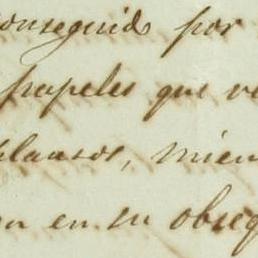 conseguido por
papeles que ve
plausos, mien
on en su obseq